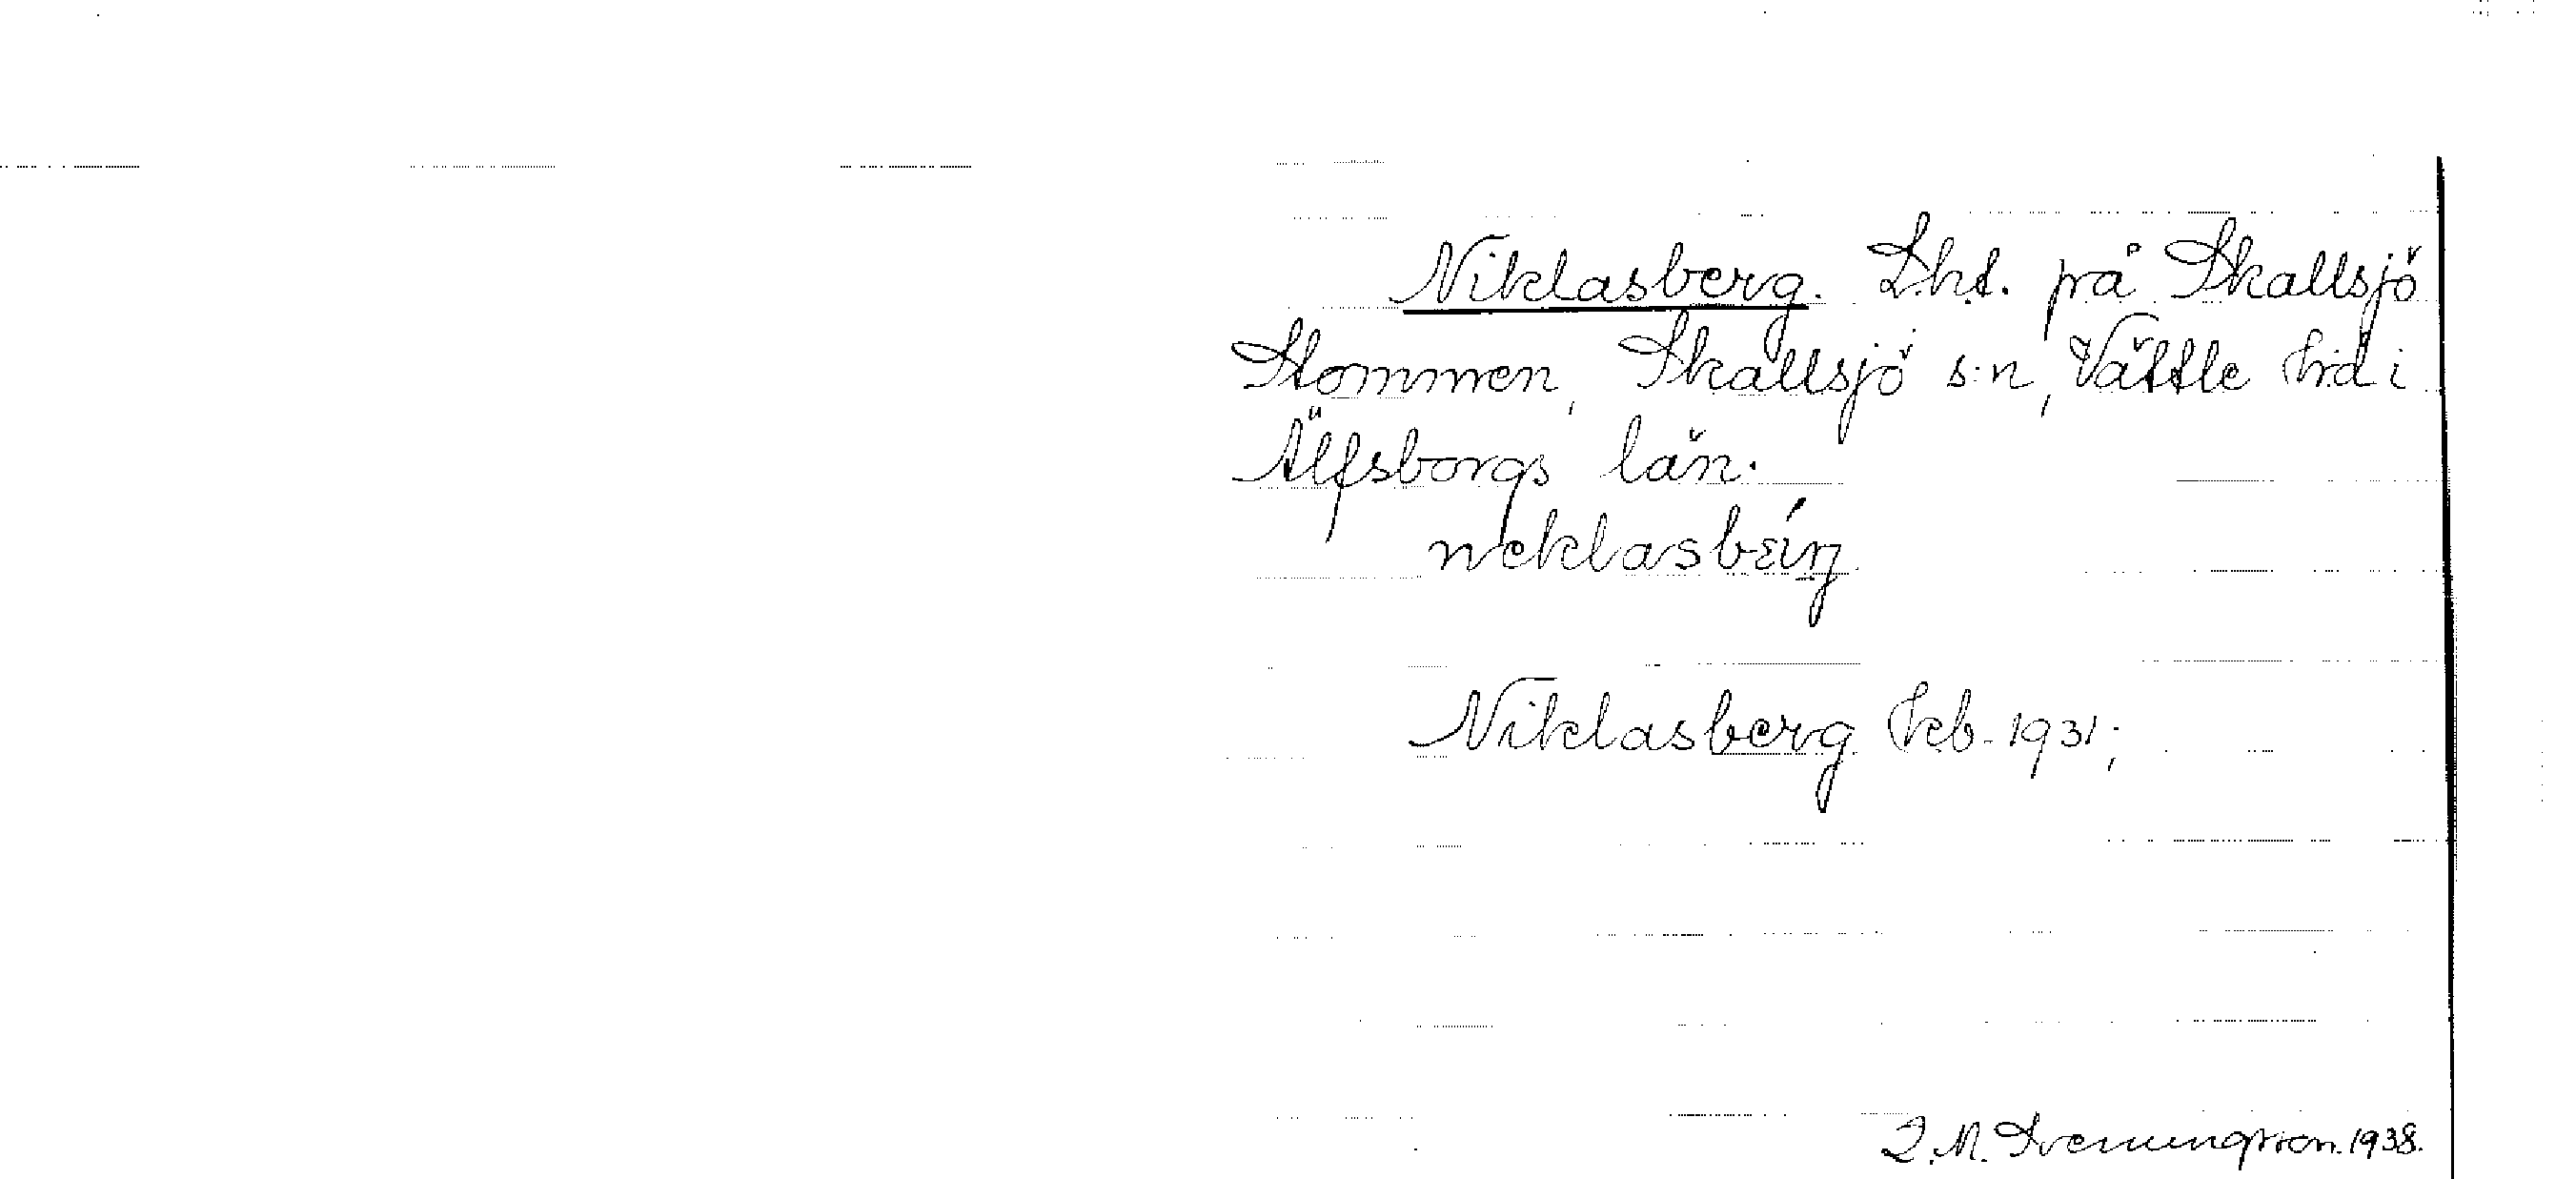 Niklasberg. Lht. på Skallsjö
Stommen, Skallsjö s:n, Vättle hrd i
Älfsborgs län.
neklasbɛ́rj
Niklasberg Jeb. 1931;
J. M. Svenungsson. 1938.